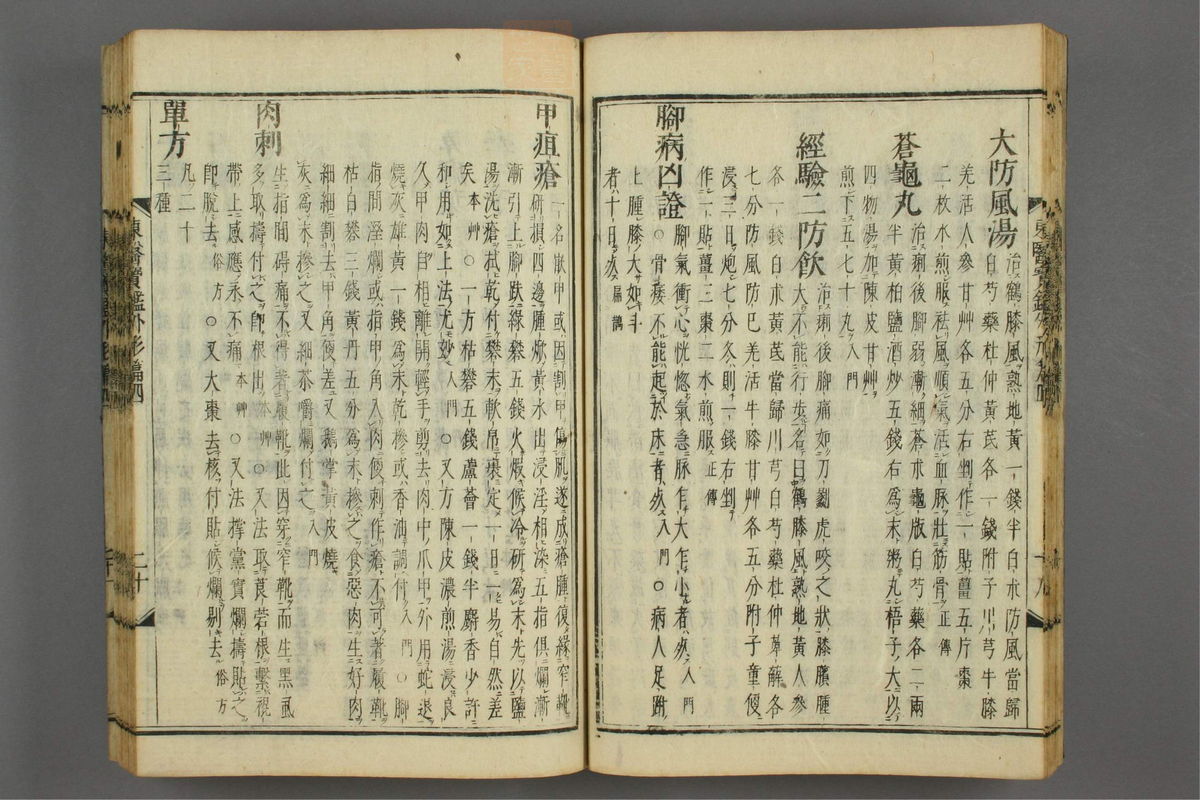 大防風湯 治鶴膝風熟地黃一錢半白朮防風當歸
白芍藥杜仲黃芪各一錢附子川芎牛膝
羌活人參甘艸各五分右剉作一貼薑五片棗
二枚水煎服祛風順氣活血脉壯筋骨 正傳
蒼龜丸 治痢後腳弱漸細蒼朮龜版白芍藥各二兩
半黃柏鹽酒炒五錢右爲末粥丸梧子大以
四物湯加陳皮甘艸
煎下五七十丸 入門
經驗二防飮 治痢後腳痛如刀劙虎咬之狀膝臏腫
大不能行步名曰鶴膝風熟地黃人參
各一錢白朮黃芪當歸川芎白芍藥杜仲萆薢各
七分防風防巴羌活牛膝甘艸各五分附子童便
浸三日炮七分冬則一錢右剉
作一貼薑三棗二水煎服 正傳
腳病凶證 腳氣衝心恍惚氣急脉乍大乍小者死 入門
○骨痿不能起於床者死 入門 ○病人足趺
上腫膝大如斗
者十日死 扁鵲
十九
甲疽瘡 一名嵌甲或因割甲傷肌遂成瘡腫復緣窄靴
漸研損四邊腫焮黃水出浸淫相染五指俱爛漸
漸引上腳趺綠礬五錢火煆候冷研爲末先以鹽
湯洗瘡拭乾付礬末軟帛裹定一日一易自然差
矣 本艸 ○一方枯礬五錢盧薈一錢半麝香少許
和用如上法尤妙 入門 ○又方陳皮濃煎湯浸良
久甲肉自相離開輕手剪去肉中爪甲外用蛇退
燒灰雄黃一錢爲末乾摻或香油調付 入門 ○腳
指間溼爛或指甲角入肉便刺作瘡不可著履靴
枯白礬三錢黃丹五分爲末摻之食惡肉生好肉
細細割去甲角便差又鵝掌黃皮燒
灰爲末摻之又細茶嚼爛付之 入門
肉刺 生指間碍痛不得著履靴此因穿窄靴而生黑虱
多取擣付之卽根出 本艸 ○又法取莨菪根繫視
帶上感應永不痛 本艸 ○又法撑黨實爛擣貼之
卽脫去 俗方 ○又大棗去核付貼候爛剔去 俗方
單方 凡二十
三種
東醫寶鑑外形篇四
二十